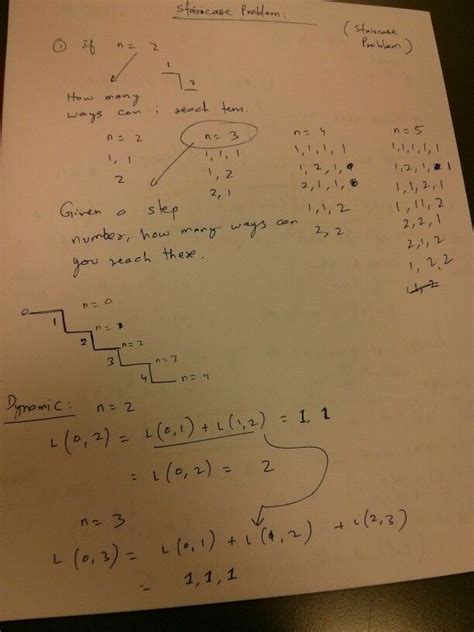 Staircase Problem:
(Staircase
Problem)
① If n = 2
1
2
How many
ways can i reach tem.
n = 2
1, 1
2
n = 3
1, 1, 1
1, 2
2, 1
n = 4
1, 1, 1, 1
1, 2, 1,
2, 1, 1,
1, 1, 2
2, 2
n = 5
1, 1, 1, 1, 1
1, 2, 1, 1
1, 1, 2, 1
1, 1 1, 2
2, 2, 1
2, 1, 2
1, 2, 2
1, 1, 2
Given a step
number, how many ways can
you reach there.
0 n = 0
1 n = 1
2 n = 2
3 n = 3
4 n = 4
Dynamic: n = 2
L(0, 2) = L(0, 1) + L(1, 2) = 1, 1
= L(0, 2) = 2
n = 3
L(0, 3) = L(0, 1) + L(1, 2) + L(2, 3)
= 1, 1, 1